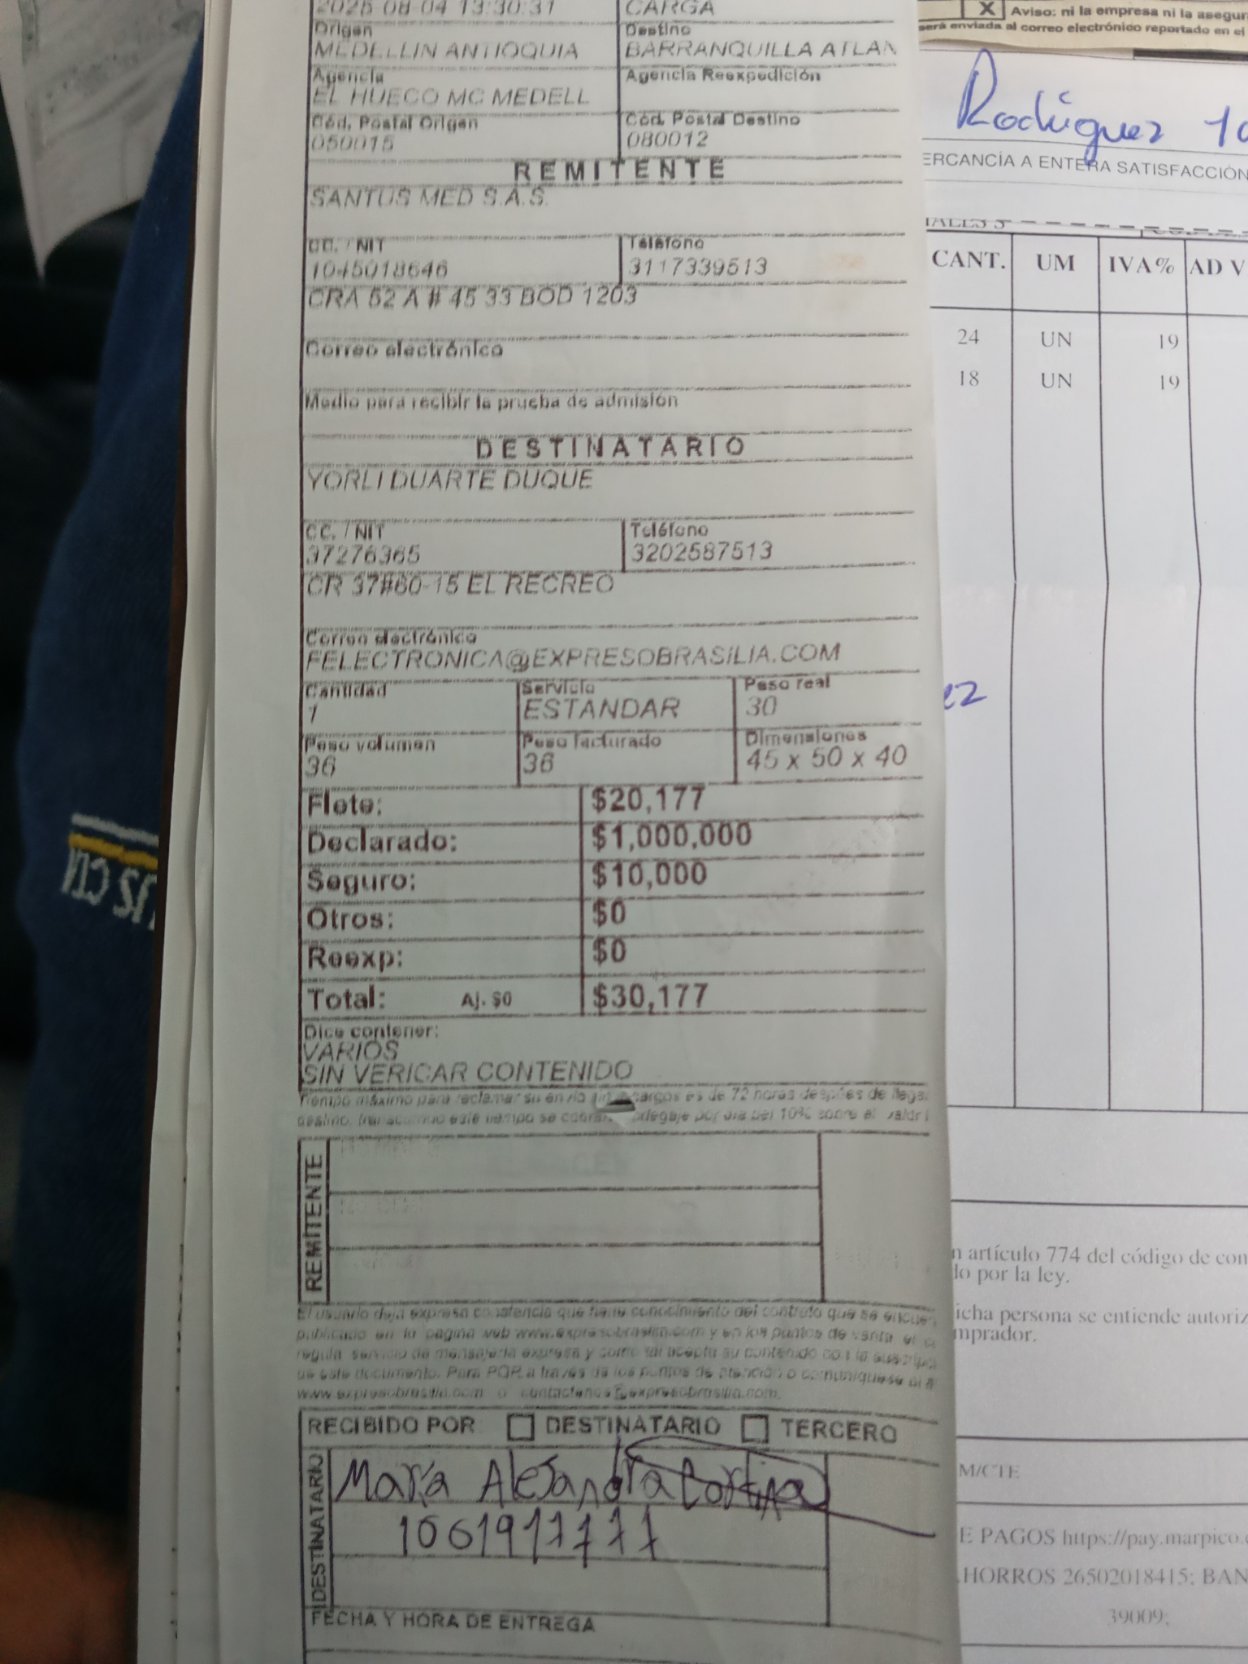 2025-08-04 13:30:31 CARGA
Origen Destino
MEDELLIN ANTIOQUIA BARRANQUILLA ATLAN
Agencia Agencia Reexpedición
EL HUECO MC MEDELL
Cód. Postal Origen Cód. Postal Destino
050015 080012
REMITENTE
SANTUS MED S.A.S.
CC. / NIT Teléfono
1045018646 3117339513
CRA 52 A # 45 33 BOD 1203
Correo electrónico
Medio para recibir la prueba de admisión
DESTINATARIO
YORLI DUARTE DUQUE
CC. / NIT Teléfono
37276365 3202587513
CR 37#60-15 EL RECREO
Correo electrónico
FELECTRONICA@EXPRESOBRASILIA.COM
Cantidad Servicio Peso real
1 ESTANDAR 30
Peso volumen Peso facturado Dimensiones
36 36 45 x 50 x 40
Flete: $20,177
Declarado: $1,000,000
Seguro: $10,000
Otros: $0
Reexp: $0
Total: Aj. $0 $30,177
Dice contener:
VARIOS
SIN VERICAR CONTENIDO
Tiempo máximo para reclamar su envío de 72 horas después de
REMITENTE
El usuario deja expresa constancia que tiene conocimiento del contrato que se
publicado en la pagina web www.expresobrasilia.com y en los puntos de venta
regula servicio de mensajería expresa y como tal acepta su contenido con la
de este documento. Para PQR a través de los puntos de atención o comuníquese
www.expresobrasilia.com o contactenos@expresobrasilia.com
RECIBIDO POR DESTINATARIO TERCERO
DESTINATARIO
María Alejandra Cortina
1061977777
FECHA Y HORA DE ENTREGA
X Aviso: ni la empresa ni la asegur
será enviada al correo electrónico reportado en el
Rodríguez
ERCANCÍA A ENTERA SATISFACCIÓN
CANT. UM IVA% AD V
24 UN 19
18 UN 19
ez
n artículo 774 del código de com
do por la ley.
icha persona se entiende autoriz
mprador.
M/CTE
E PAGOS https://pay.marpico.
HORROS 26502018415; BAN
39009;